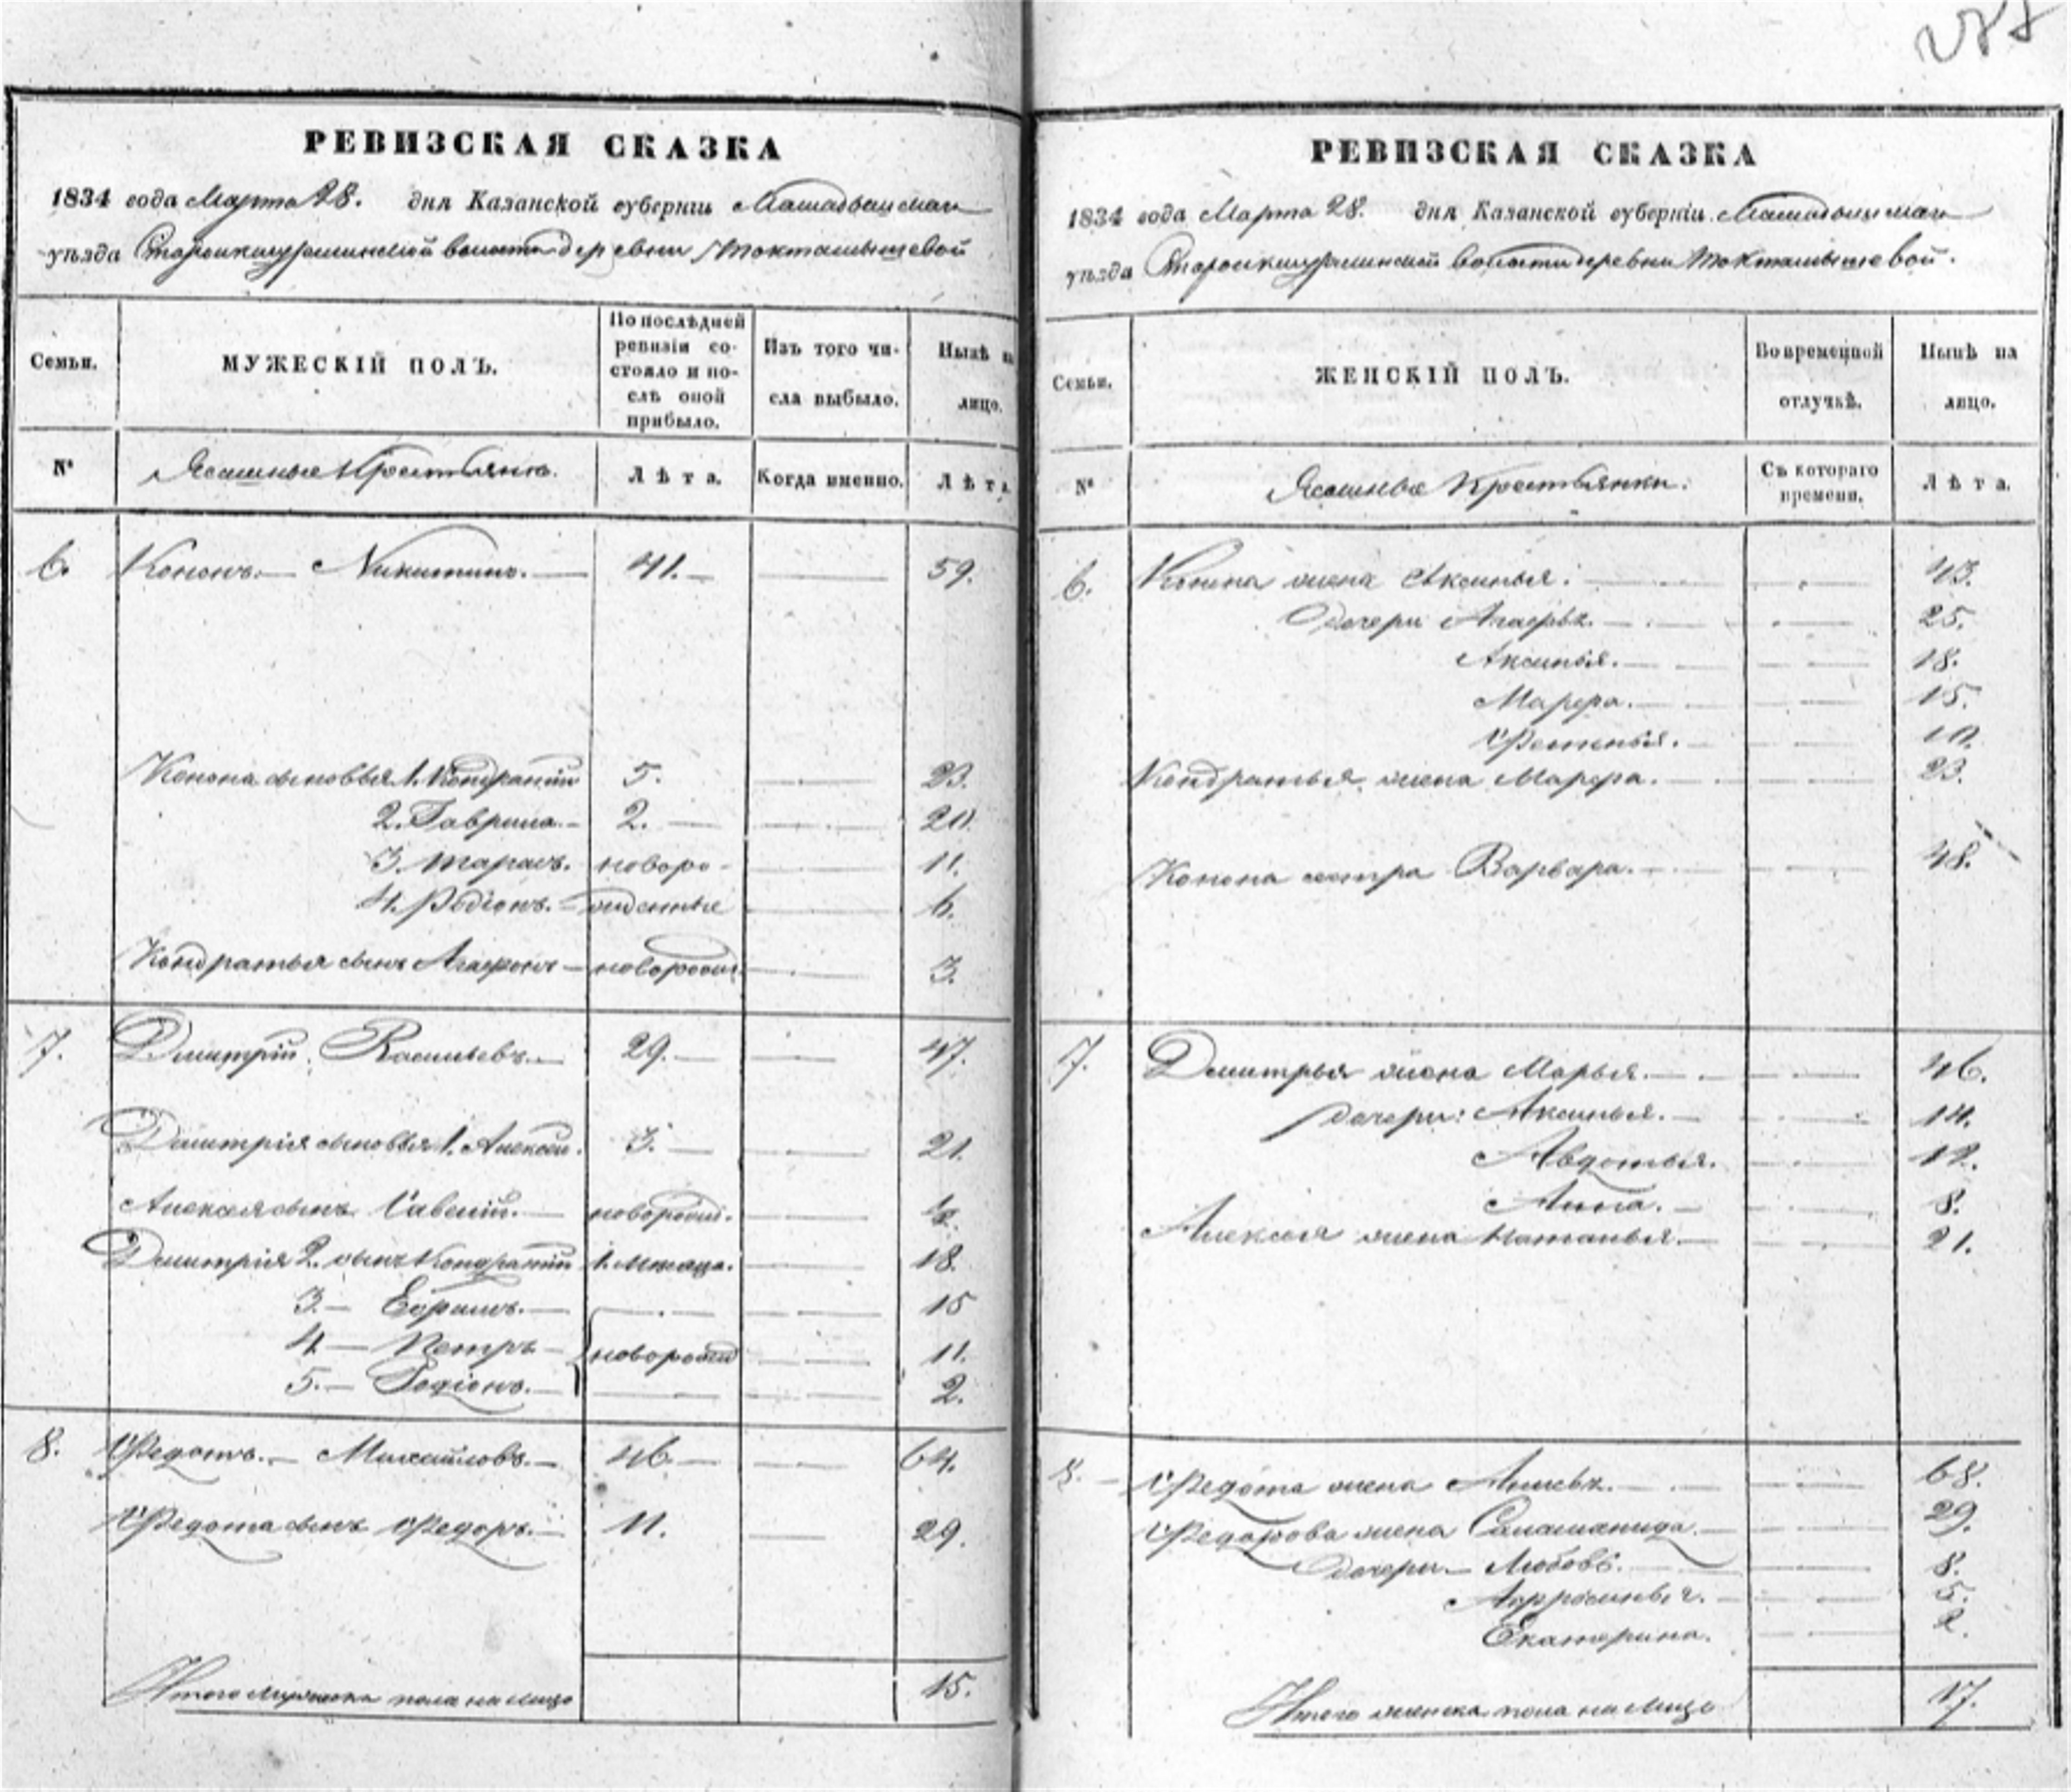 287
РЕВИЗСКАЯ СКАЗКА
1834 года Марта 28. дня Казанской губерніи
уѣзда волости деревни Токташышевой
Семьи.
МУЖЕСКІЙ ПОЛЪ.
По послѣдней
ревизіи со-
стояло и по-
слѣ оной
прибыло.
Изъ того чи-
сла выбыло.
Нынѣ на
лицо.
№
Ясашные Крестьяне.
Лѣта.
Когда именно.
Лѣта
6. Кононъ. — Никитинъ. — 41. — 59.
Конона сыновья 1. Кондратій 5. 23.
2. Гаврила. — 2. — 20.
3. Тарасъ. новоро- 11.
4. Родіонъ. — жденные 6.
Кондратья сынъ Агафонъ — новорожд. 3.
7. Дмитрій Васильевъ. — 29. — 47.
Дмитрія сыновья 1. Алексѣй. 3. — 21.
Алексѣя сынъ Савелій. — новорожд. ½.
Дмитрія 2. сынъ Кондратій 1. мѣсяца. 18.
3. — Ефримъ. — 15
4. — Петръ — новорожд 11.
5. — Родіонъ. — 2.
8. Федотъ. — Михайловъ. — 46 — 64.
Федота сынъ Федоръ. — 11. 29.
Итого мужеска пола на лицо 15.
РЕВИЗСКАЯ СКАЗКА
1834 года Марта 28. дня Казанской губерніи
уѣзда волости деревни Токташышевой.
Семьи.
ЖЕНСКІЙ ПОЛЪ.
Во временной
отлучкѣ.
Нынѣ на
лицо.
№
Ясашныя Крестьянки.
Съ котораго
времени.
Лѣта.
6. Конона жена Аксинья. 43.
Дочери Агафья. 25.
Аксинья. 18.
Марфа. 15.
Фетинья. 10.
Кондратья жена Марфа. 23.
Конона сестра Варвара. 48.
7. Дмитрья жена Марья. 46.
дочери: Аксинья. 14.
Авдотья. 12.
Анна. 8.
Алексѣя жена Наталья. 21.
8. Федота жена 68.
Федорова жена Саламанида. 29.
Дочери — Любовь. 8.
Афросинья. 5.
Екатерина. 2.
Итого женска пола на лицо 17.